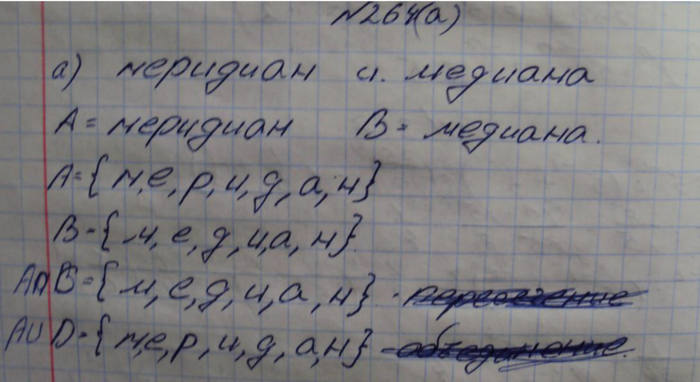 №264(а)
а) меридиан и. медиана
А = меридиан В = медиана.
А = {м, е, р, и, д, а, н}
В = {м, е, д, и, а, н}
А∩В = {м, е, д, и, а, н} - пересечение
А∪D = {м, е, р, и, д, а, н} - объединение.